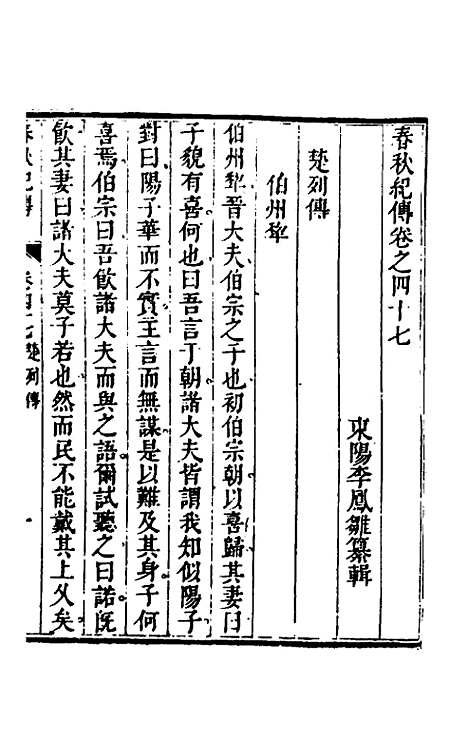 春秋紀傳卷之四十七
東陽李鳳雛纂輯
楚列傳
伯州犂
伯州犂晉大夫伯宗之子也初伯宗朝以喜歸其妻曰
子貌有喜何也曰吾言于朝諸大夫皆謂我知似陽子
對曰陽子華而不實主言而無謀是以難及其身子何
喜焉伯宗曰吾飮諸大夫而與之語爾試聽之曰諾旣
飮其妻曰諸大夫莫子若也然而民不能戴其上久矣
春秋紀傳 卷四十七楚列傳